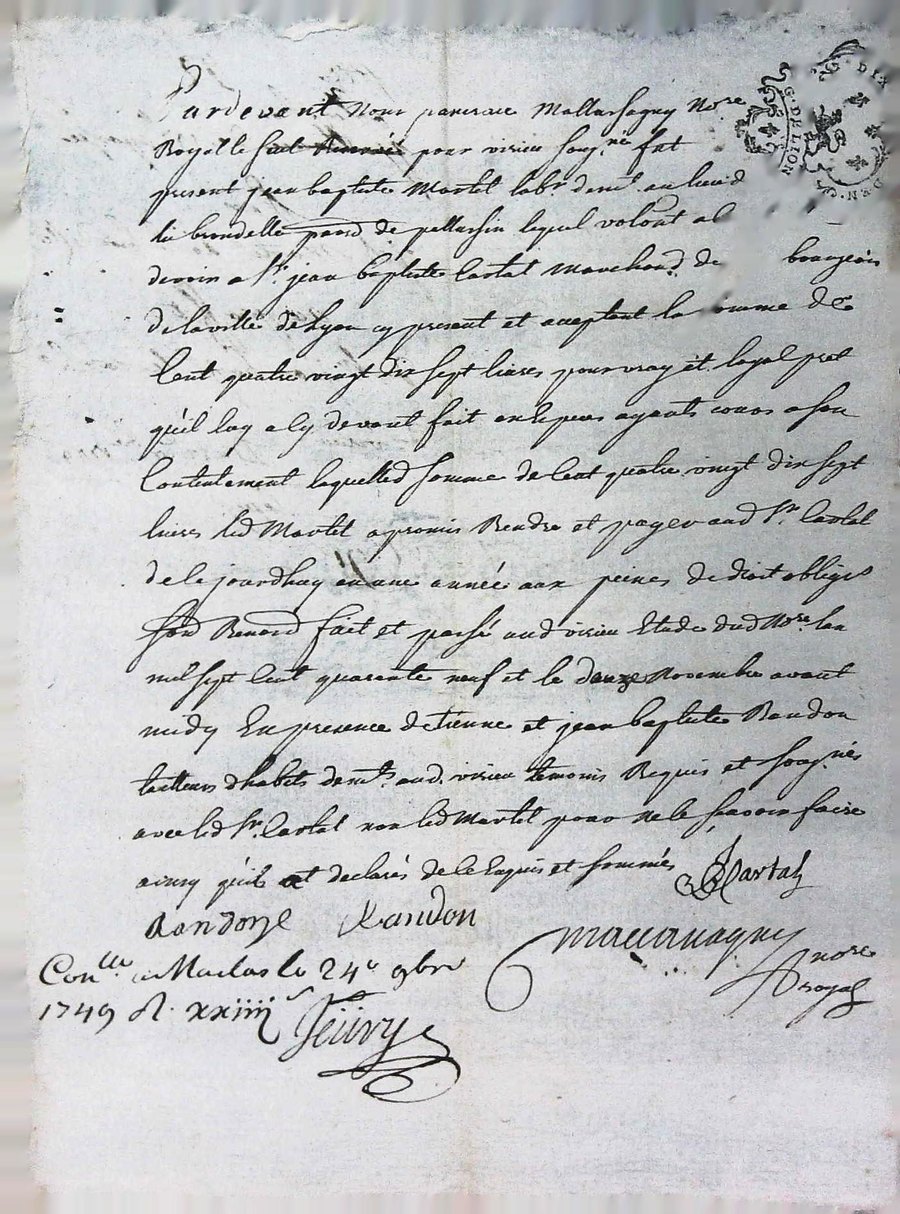 G. DE LION
G. DIX DEN.
Pardevant Nous Mallassagny Nore
Royal le pour virieu soug.né fut
present jean baptiste Martel labr demt au lieu d
la brondelle paroid de pellussin lequel volont al
devoir a Sr. jean baptiste Cartal Marchand de bourgeois
de la ville de Lyon cy present et aceptant la omme de
Cent quatre vingt dix sept livres pour vray et loyal pret
qu'il luy a cy devant fait en especes ayants cours a son
Contentement laquelled somme de Cent quatre vingt dix sept
livres led Martel a promis Rendre et payer aud Sr. Cartal
de ce jourdhuy en une année aux peines de droit obligé
fait et passé aud virieu Etude dud Nore. Lan
mil sept Cent quarante neuf et le douze Novembre avant
midy En presence detienne et jean baptiste Randon
tailleurs dhabits demts. aud. virieu temoins Requis et soug.nés
avec led Sr. Cartal non led Martel pour ne le savoir faire
ainsy qu'il at declaré de ce Enquis et sommés
Cartal
Randon Randon
nore
royal
Conlle a Maclas le 24e 9bre
1749 R. xxiiii s